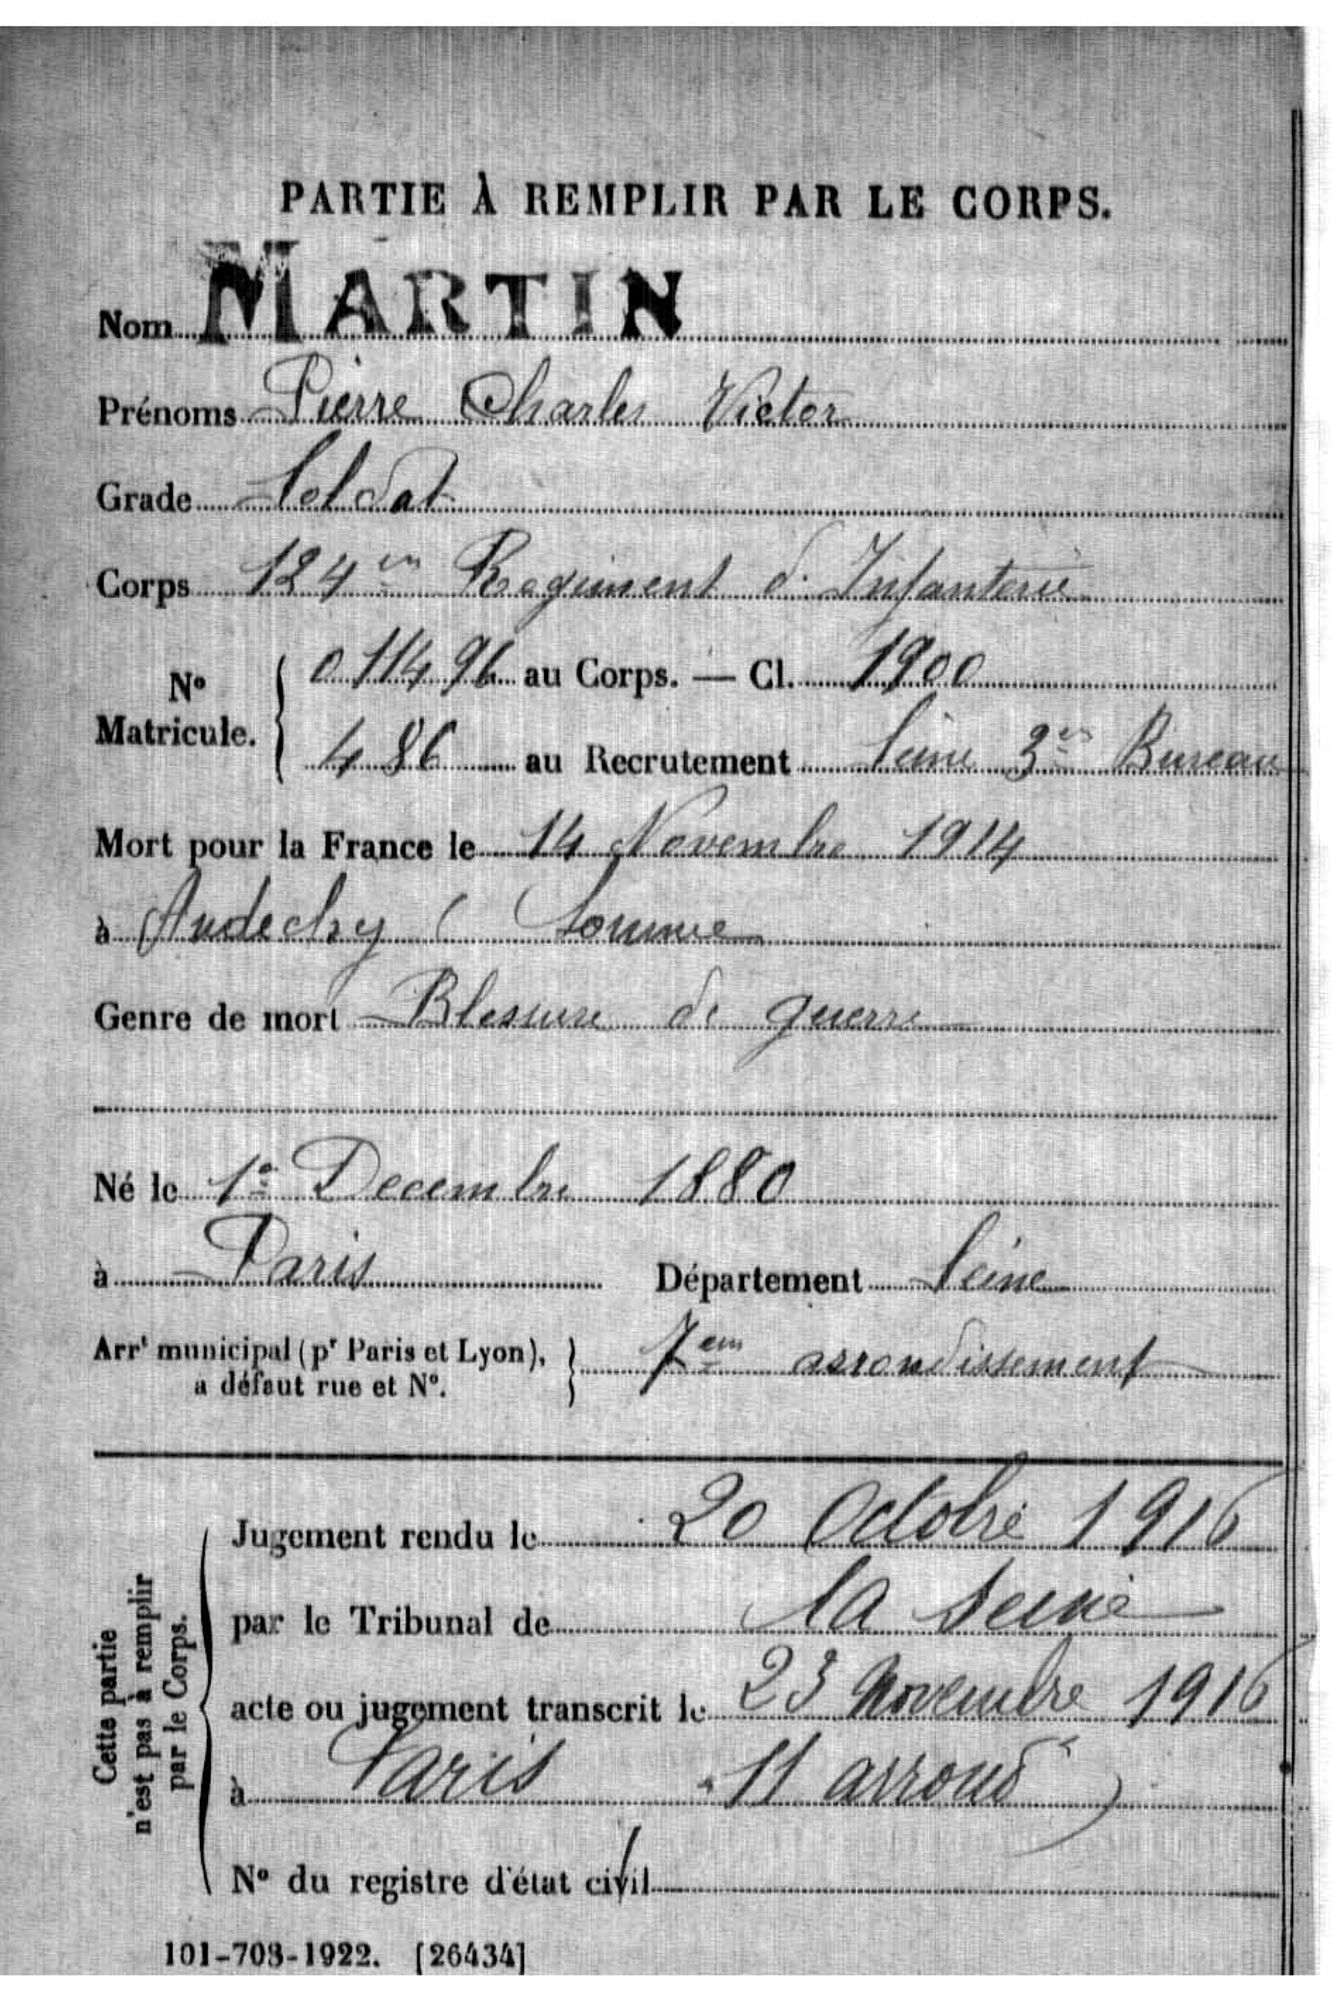 PARTIE À REMPLIR PAR LE CORPS.
Nom MARTIN
Prénoms Pierre Charles Victor
Grade Soldat
Corps 124em Regiment d'Infanterie
No Matricule. { 011496 au Corps. — Cl. 1900
486 au Recrutement Seine 3em Bureau
Mort pour la France le 14 Novembre 1914
à Andechy ( Somme
Genre de mort Blessure de guerre
Né le 1er Decembre 1880
à Paris Département Seine
Arrt municipal (pr Paris et Lyon), } 7em arrondissement
à défaut rue et No.
Cette partie n'est pas à remplir par le Corps.
Jugement rendu le 20 Octobre 1916
par le Tribunal de la Seine
acte ou jugement transcrit le 23 Novembre 1916
à Paris 11 arrond )
No du registre d'état civil
101-708-1922. [26434]